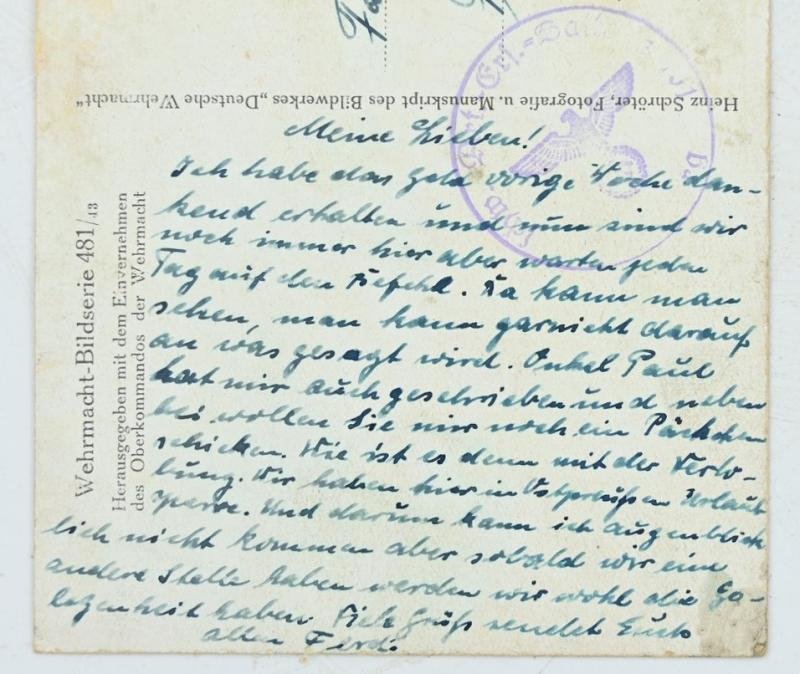 Heinz Schröter, Fotografie u. Manuskript des Bildwerkes „Deutsche Wehrmacht"
Wehrmacht-Bildserie 481/43
Herausgegeben mit dem Einvernehmen
des Oberkommandos der Wehrmacht
Meine Lieben!
Ich habe das geld vorige Woche dan-
kend erhalten und nun sind wir
noch immer hier aber warten jeden
Tag auf den Befehl. Da kann man
sehen, man kann garnicht darauf
an was gesagt wird. Onkel Paul
hat mir auch geschrieben und neben
bei wollen Sie mir noch ein Päckchen
schicken. Wie ist es denn mit der Verlo-
bung. Wir haben hier in Ostpreußen Urlaub
sperre. Und darum kann ich augenblick
lich nicht kommen aber sobald wir eine
andere Stelle haben werden wir wohl die Ge-
legenheit haben. Viele Grüß sendet Euch
allen Ferd.